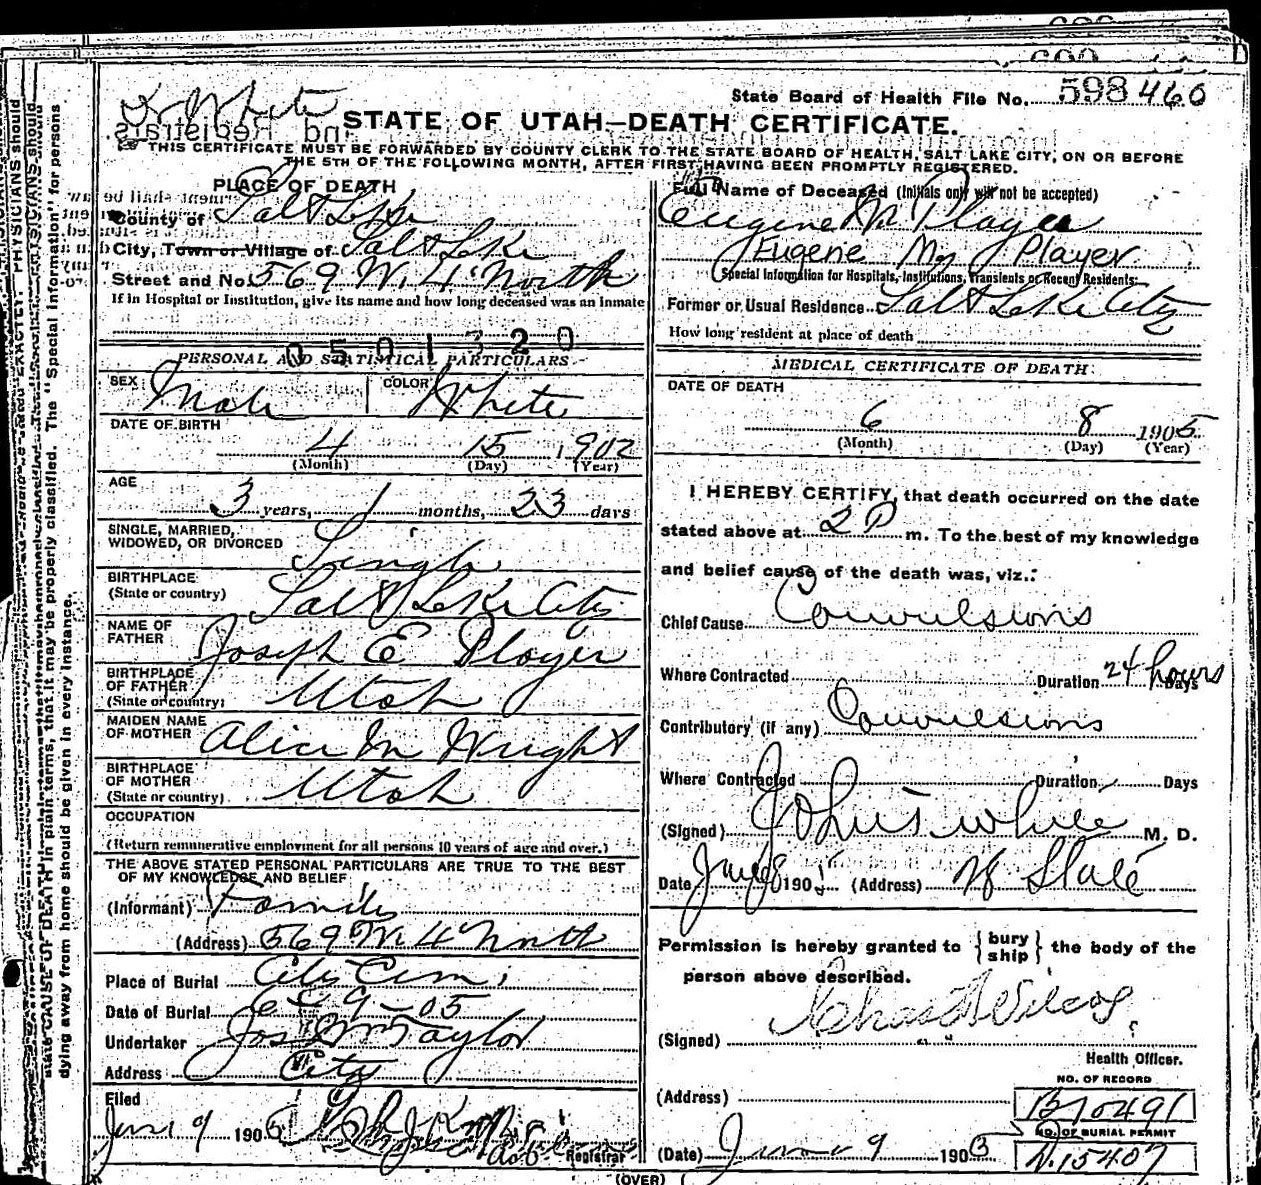 598460
State Board of Health File No.
STATE OF UTAH—DEATH CERTIFICATE.
THIS CERTIFICATE MUST BE FORWARDED BY COUNTY CLERK TO THE STATE BOARD OF HEALTH, SALT LAKE CITY, ON OR BEFORE
THE 5TH OF THE FOLLOWING MONTH, AFTER FIRST HAVING BEEN PROMPTLY REGISTERED.
PLACE OF DEATH
County of Salt Lake
City, Town or Village of Salt Lake
Street and No. 569 W. 4 North
If in Hospital or Institution, give its name and how long deceased was an Inmate
0501320
PERSONAL AND STATISTICAL PARTICULARS
SEX Male COLOR White
DATE OF BIRTH
4 15 1902
(Month) (Day) (Year)
AGE
3 years, 1 months, 23 days
SINGLE, MARRIED,
WIDOWED, OR DIVORCED Single
BIRTHPLACE
(State or country) Salt Lake City
NAME OF
FATHER Joseph E Player
BIRTHPLACE
OF FATHER
(State or country) Utah
MAIDEN NAME
OF MOTHER Alice M Wright
BIRTHPLACE
OF MOTHER
(State or country) Utah
OCCUPATION
(Return remunerative employment for all persons 10 years of age and over.)
THE ABOVE STATED PERSONAL PARTICULARS ARE TRUE TO THE BEST
OF MY KNOWLEDGE AND BELIEF
(Informant) Family
(Address) 569 W. 4 North
Place of Burial City Cem.
Date of Burial 6 - 9 - 05
Undertaker Jos Wm Taylor
Address City
Filed
June 9 1905
Registrar
Full Name of Deceased (Initials only will not be accepted)
Eugene M Player
Eugene M. Player
(Special Information for Hospitals, Institutions, Transients or Recent Residents:
Former or Usual Residence Salt Lake City
How long resident at place of death
MEDICAL CERTIFICATE OF DEATH:
DATE OF DEATH
6 8 1905
(Month) (Day) (Year)
I HEREBY CERTIFY, that death occurred on the date
stated above at 2 P m. To the best of my knowledge
and belief cause of the death was, viz.:
Chief Cause Convulsions
Where Contracted Duration 24 hours Days
Contributory (if any) Convulsions
Where Contracted Duration Days
(Signed) M. D.
Date 8 1905 (Address) State
Permission is hereby granted to { bury ship } the body of the
person above described.
(Signed) Chas Wilcox
Health Officer.
(Address)
NO. OF RECORD
B 10491
NO. OF BURIAL PERMIT
(Date) June 9 190 N. 15407
(OVER)
state CAUSE OF DEATH in plain terms, that it may be properly classified. The "Special Information" for persons
dying away from home should be given in every instance.